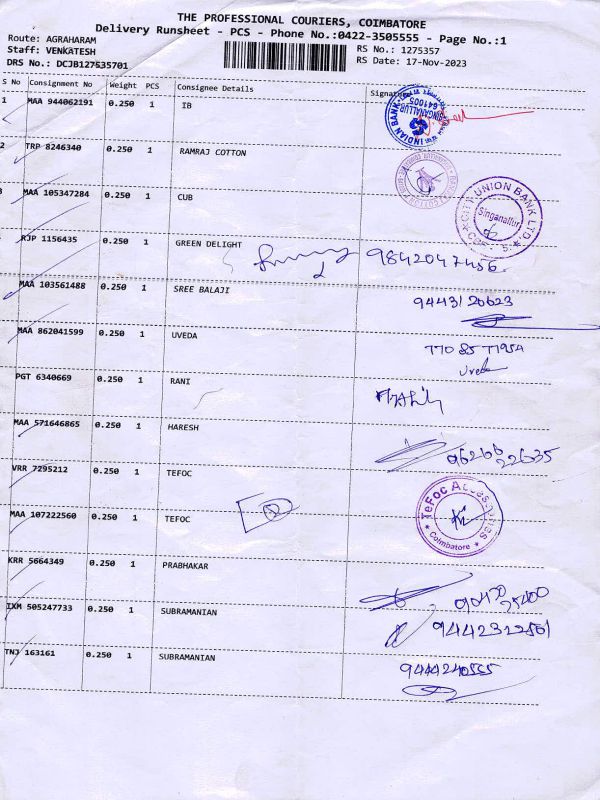 THE PROFESSIONAL COURIERS, COIMBATORE
Delivery Runsheet - PCS - Phone No.:0422-3505555 - Page No.:1
Route: AGRAHARAM
Staff: VENKATESH
DRS No.: DCJB127535701
RS No.: 1275357
RS Date: 17-Nov-2023
S No Consignment No Weight PCS Consignee Details Signature
1 MAA 944062191 0.250 1 IB
INDIAN BANK SINGANALLUR 641005
2 TRP 8246340 0.250 1 RAMRAJ COTTON
MAA 105347284 0.250 1 CUB
CITY UNION BANK LTD. Singanallur
RJP 1156435 0.250 1 GREEN DELIGHT 9842047456
MAA 103561488 0.250 1 SREE BALAJI 9443120623
MAA 862041599 0.250 1 UVEDA
Uveda
PGT 6340669 0.250 1 RANI
MAA 571646865 0.250 1 HARESH 96266 22635
VRR 7295212 0.250 1 TEFOC
TeFoc Accessories Coimbatore
MAA 107222560 0.250 1 TEFOC
KRR 5664349 0.250 1 PRABHAKAR
IXM 505247733 0.250 1 SUBRAMANIAN 9442312501
TNJ 163161 0.250 1 SUBRAMANIAN 9444240555